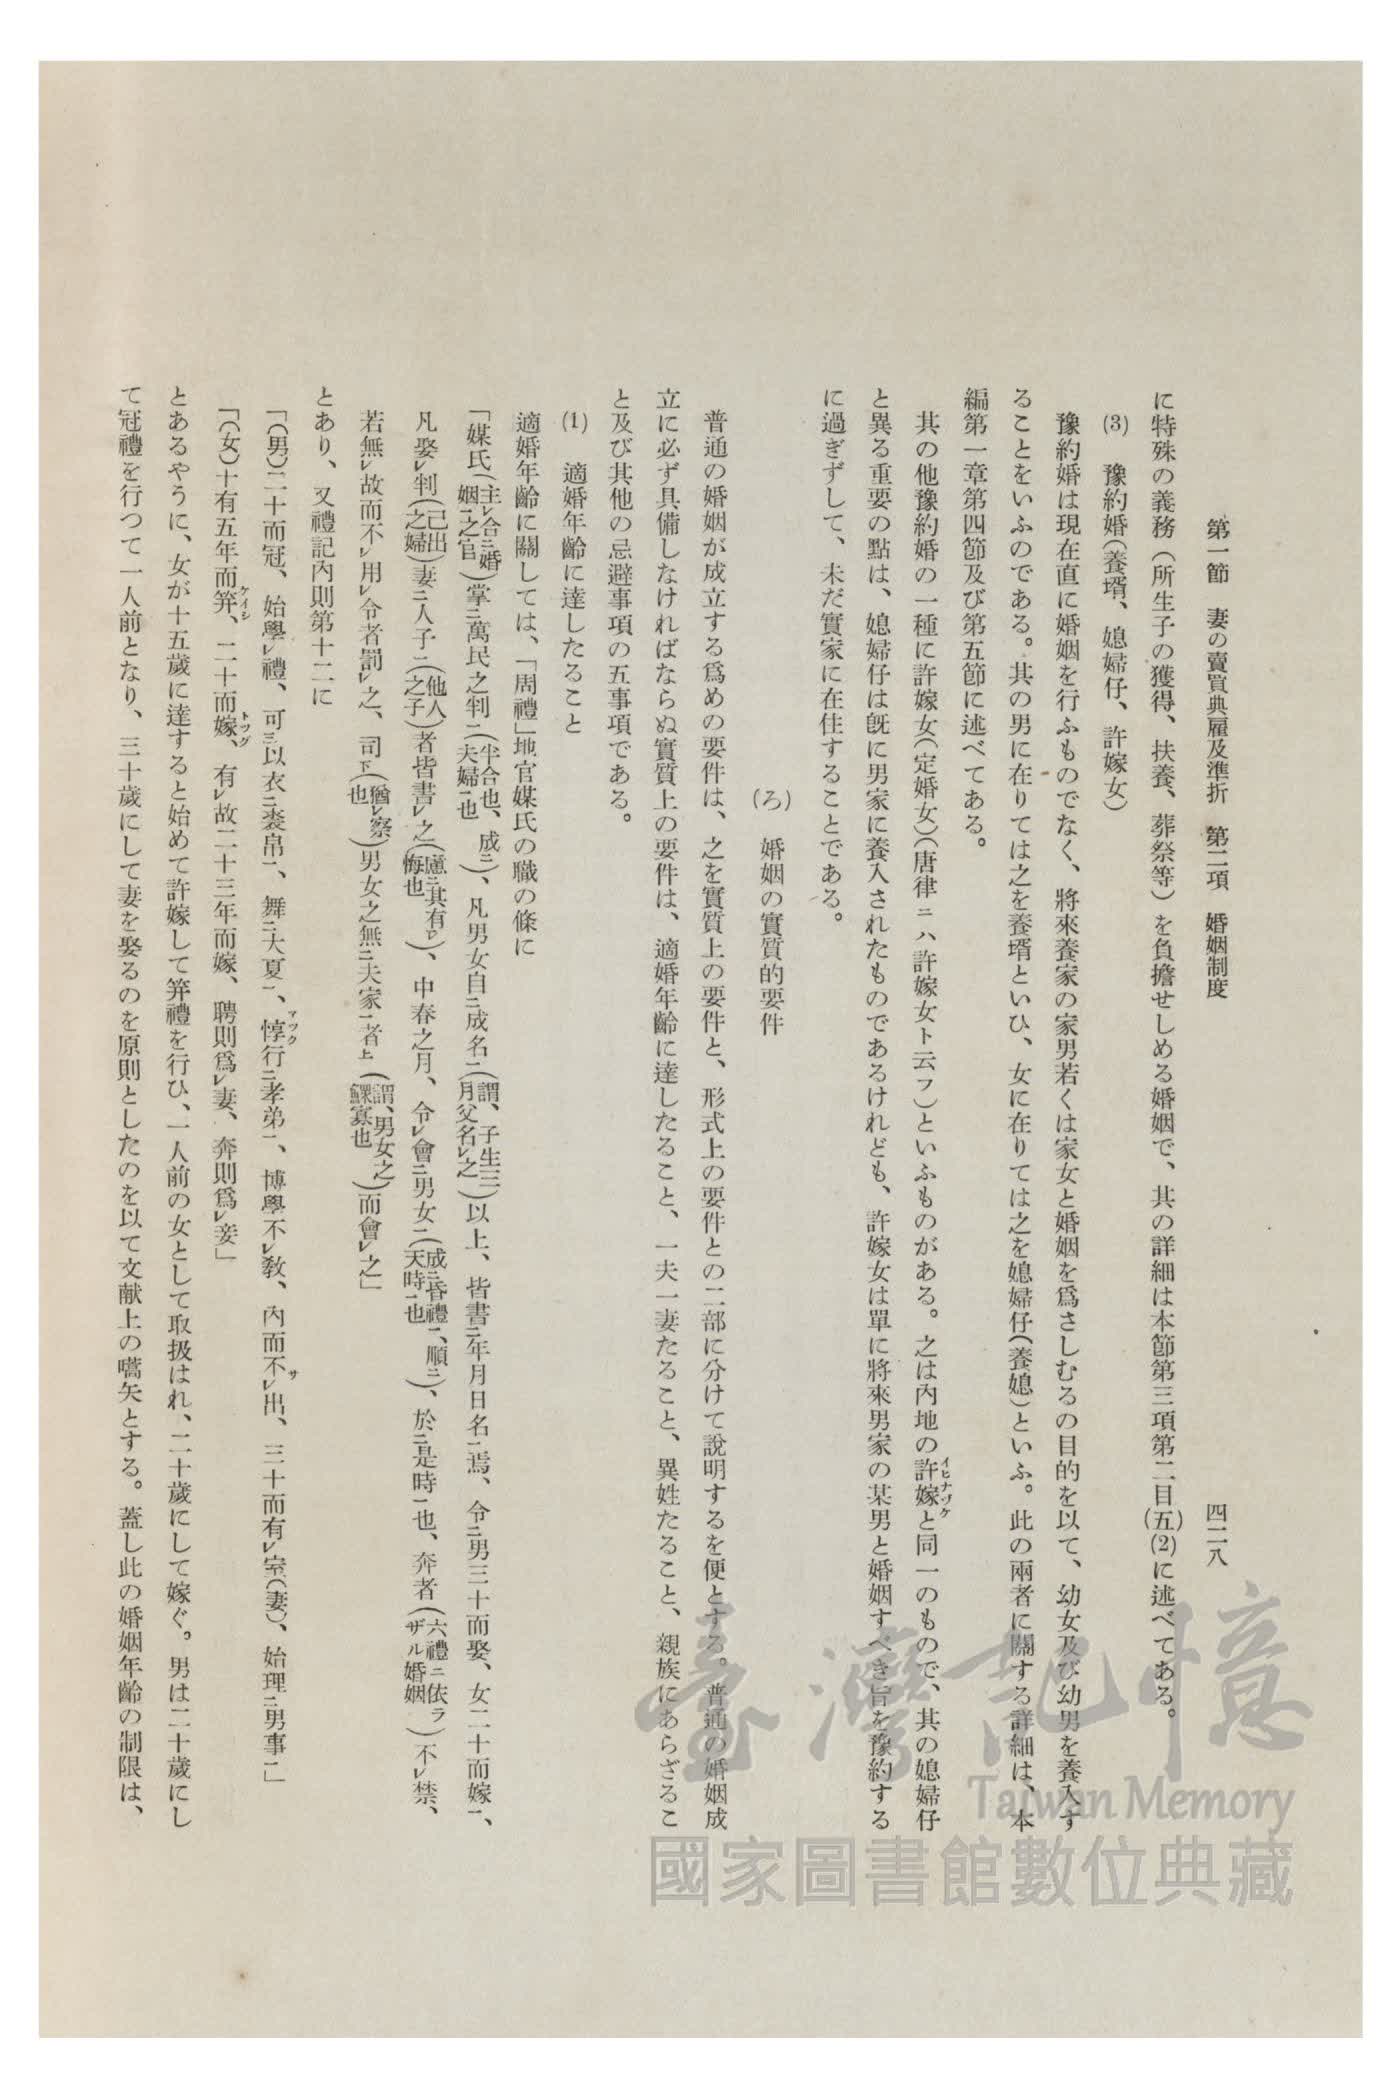 第一節　妻の賣買典雇及準折　第二項　婚姻制度　四二八
に特殊の義務（所生子の獲得、扶養、葬祭等）を負擔せしめる婚姻で、其の詳細は本節第三項第二目(五)(2)に述べてある。
(3)　豫約婚（養壻、媳婦仔、許嫁女）
豫約婚は現在直に婚姻を行ふものでなく、將來養家の家男若くは家女と婚姻を爲さしむるの目的を以て、幼女及び幼男を養入す
ることをいふのである。其の男に在りては之を養壻といひ、女に在りては之を媳婦仔（養媳）といふ。此の兩者に關する詳細は、本
編第一章第四節及び第五節に述べてある。
其の他豫約婚の一種に許嫁女（定婚女）（唐律ニハ許嫁女ト云フ）といふものがある。之は內地の許嫁イヒナヅケと同一のもので、其の媳婦仔
と異る重要の點は、媳婦仔は旣に男家に養入されたものであるけれども、許嫁女は單に將來男家の某男と婚姻すべき旨を豫約する
に過ぎずして、未だ實家に在住することである。
（ろ）　婚姻の實質的要件
普通の婚姻が成立する爲めの要件は、之を實質上の要件と、形式上の要件との二部に分けて說明するを便とする。普通の婚姻成
立に必ず具備しなければならぬ實質上の要件は、適婚年齡に達したること、一夫一妻たること、異姓たること、親族にあらざるこ
と及び其他の忌避事項の五事項である。
(1)　適婚年齡に達したること
適婚年齡に關しては、「周禮」地官媒氏の職の條に
「媒氏（主レ合二婚姻一之官）掌二萬民之判一（半合也、成二夫婦一也）、凡男女自二成名一（謂、子生三月父名レ之）以上、皆書二年月日名一焉、令二男三十而娶、女二十而嫁一、
凡娶レ判（己出之婦）妻二人子一（他人之子）者皆書レ之（慮三其有レ悔也）、中春之月、令レ會二男女一（成二昏禮一、順二天時一也）、於二是時一也、奔者（六禮ニ依ラザル婚姻）不レ禁、
若無レ故而不レ用レ令者罰レ之、司下（猶レ察也）男女之無二夫家一者上（謂、男女之鰥寡也）而會レ之」
とあり、又禮記內則第十二に
「（男）二十而冠、始學レ禮、可三以衣二裘帛一、舞二大夏一、惇マツク行二孝弟一、博學不レ敎、內而不レ出サ、三十而有レ室（妻）、始理二男事一」
「（女）十有五年而笄ケイシ、二十而嫁トツグ、有レ故二十三年而嫁、聘則爲レ妻、奔則爲レ妾」
とあるやうに、女が十五歲に達すると始めて許嫁して笄禮を行ひ、一人前の女として取扱はれ、二十歲にして嫁ぐ。男は二十歲にし
て冠禮を行つて一人前となり、三十歲にして妻を娶るのを原則としたのを以て文献上の嚆矢とする。蓋し此の婚姻年齡の制限は、
臺灣記憶
Taiwan Memory
國家圖書館數位典藏